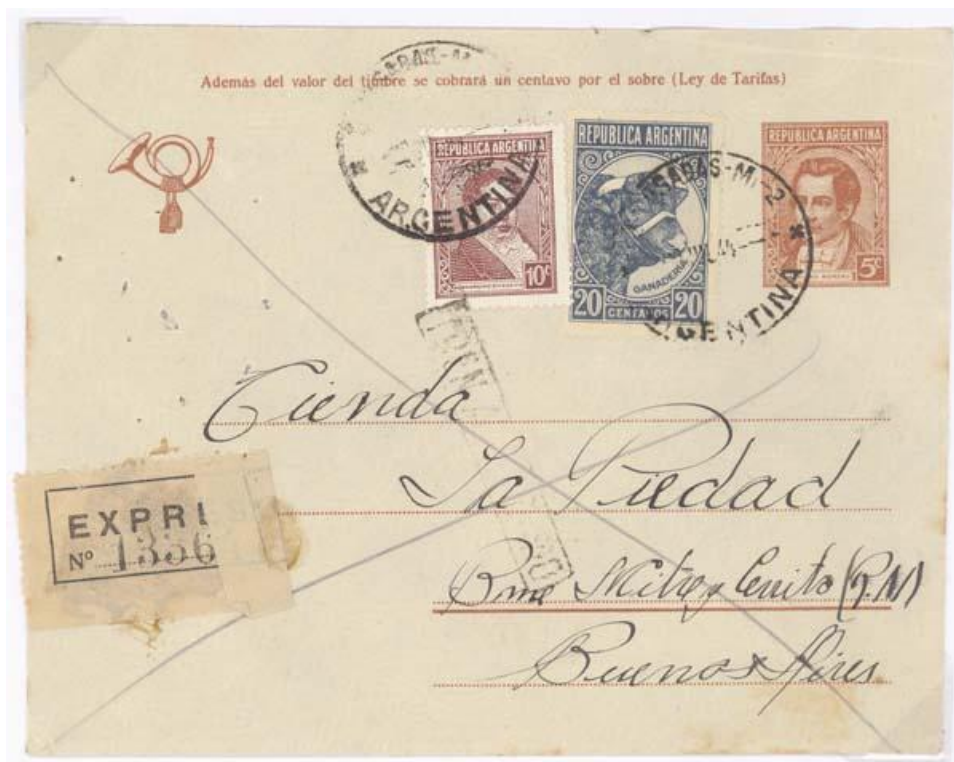 Además del valor del timbre se cobrará un centavo por el sobre (Ley de Tarifas)
REPUBLICA ARGENTINA
10c
REPUBLICA ARGENTINA
GANADERIA
20 CENTAVOS 20
REPUBLICA ARGENTINA
5c
ARGENTINA
ARGENTINA
Tienda
La Piedad
Bme Mitre y Cerrito (R.M)
Buenos Aires
EXPRE
Nº 1356